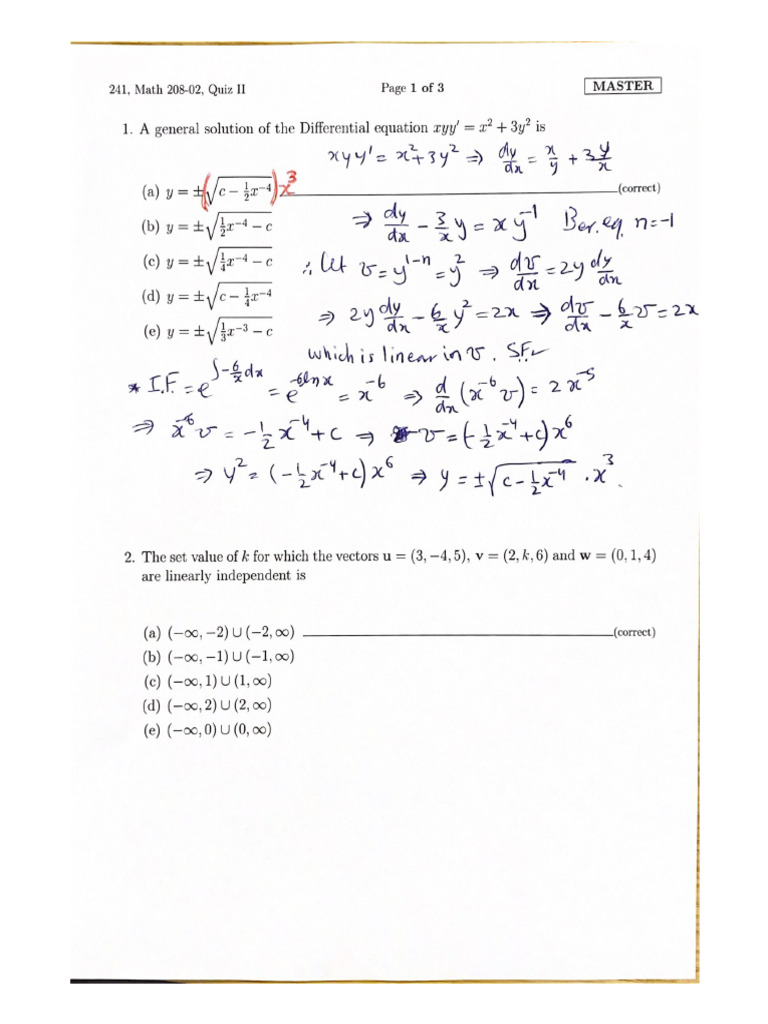 241, Math 208-02, Quiz II Page 1 of 3 MASTER
1. A general solution of the Differential equation xyy′ = x² + 3y² is
xyy' = x² + 3y² ⇒ dy/dx = x/y + 3 y/x
(a) y = ±(√(c − ½x⁻⁴)) x³ (correct)
⇒ dy/dx - 3/x y = x y⁻¹ Ber. eq. n = -1
(b) y = ±√(½x⁻⁴ − c)
(c) y = ±√(¼x⁻⁴ − c)
∴ Let v = y¹⁻ⁿ = y² ⇒ dv/dx = 2y dy/dx
(d) y = ±√(c − ¼x⁻⁴)
⇒ 2y dy/dx - 6/x y² = 2x ⇒ dv/dx - 6/x v = 2x
(e) y = ±√(⅓x⁻³ − c)
which is linear in v. S.F ✓
* I.F = e^(∫ -6/x dx) = e^(-6 ln x) = x⁻⁶ ⇒ d/dx (x⁻⁶ v) = 2 x⁻⁵
⇒ x⁻⁶ v = -½ x⁻⁴ + c ⇒ v = (-½ x⁻⁴ + c) x⁶
⇒ y² = (-½ x⁻⁴ + c) x⁶ ⇒ y = ±√(c - ½ x⁻⁴) · x³.
2. The set value of k for which the vectors u = (3, −4, 5), v = (2, k, 6) and w = (0, 1, 4)
are linearly independent is
(a) (−∞, −2) ∪ (−2, ∞) (correct)
(b) (−∞, −1) ∪ (−1, ∞)
(c) (−∞, 1) ∪ (1, ∞)
(d) (−∞, 2) ∪ (2, ∞)
(e) (−∞, 0) ∪ (0, ∞)